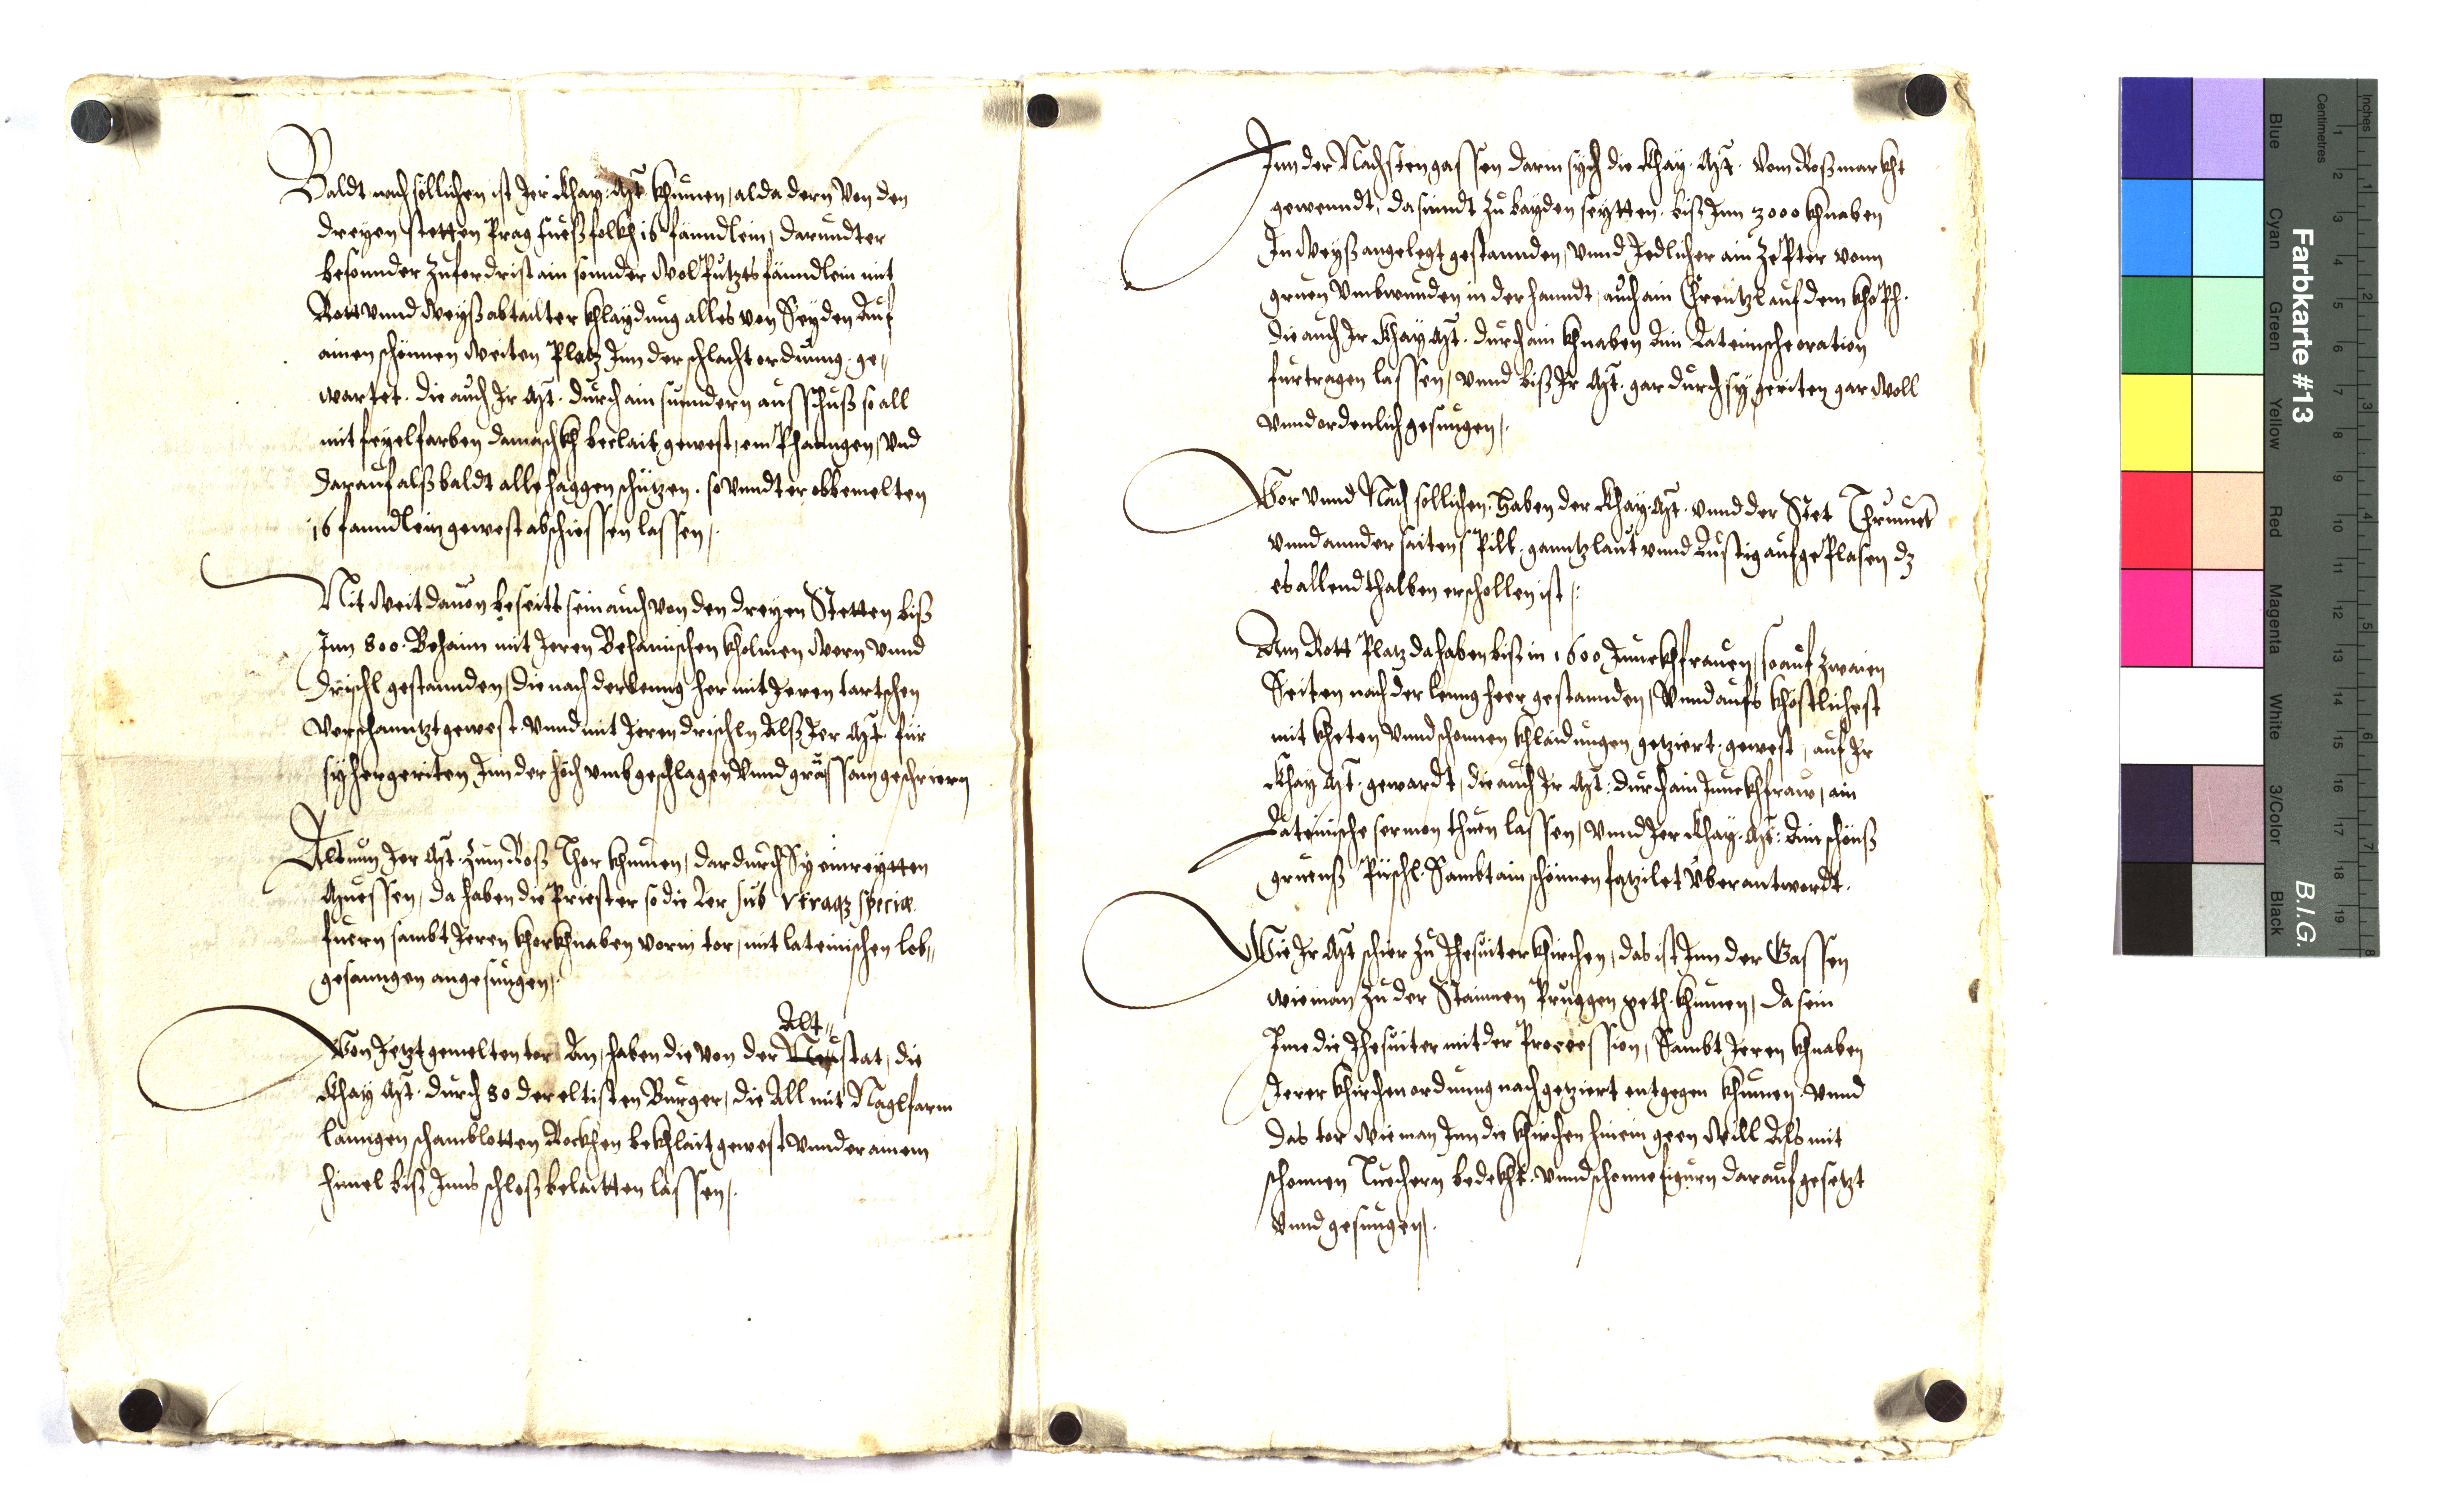 Baldt nach söllichen ist Jer Khay: Mt: khumen, alda dern von den
dreyen stetten Prag fueß folkh 16 fänndlein, darundter
besonnder zuferdrist ain sonnder wol Putzts fänndlein mit
Rott vnnd weyß abtailter khlaydung alles von Seyden Auf
ainen schönnen weiten Platz Jnn der schlacht ordnung ge,,
wartet. die auch Jr Mt. durch ain sunndern ausschuß so all
mit feyelfarben damaschkh beclait gewest, em Phanngen, vnd
darauf alß baldt alle haggenschützen. so vnndter obbemelten
16 fanndlein gewest abschiessen lassen.
Nit weit dauon beseits sein auch von den dreyen Stetten biß
Jnn 800. Behaim mit Jeren Behamischen kholmen wern vnnd
drischl gestannden, die nach der lenng her mit Jeren tartschen
verschanntzt gewest vnnd mit Jeren drischln Alß Jer Mt. für
sy hergeriten Jnn der höch vmbgeschlagen vnnd graussam geschriern
Als nun Jer Mt. zum Roß Thor khumen, dardurch Sy einreytten
Muessen, da haben die Priester so die Ler sub vtraqz specie
fuern sambt Jeren khorkhnaben vorm tor, mit lateinischen lob,,
gesanngen angesungen.
Alt,,
Von Jetzt gemelten tor An, haben die von der Neustat, die
Khay Mt. durch 80 der eltisten Burger, die All mit Naglfarm
lanngen schamblotten Rockhen bekhlait gewest vnnder ainem
himel biß Jnns schloß belaitten lassen.
Jnn der Nachsten gassen darin sych die Khay. Mt. vom Roßmarkht
gewenndt, da sinndt zu bayden seytten biß Jnn 3000 khnaben
Jn weyß angelegt gestannden, vnnd Jedlicher ain zepter vonn
gruen vmbwunden in der hanndt, auch ain Chrentzl auf dem khoph.
die auch Jr Khay Mt. durch ain khnaben Ain Lateinische oration
furtragen lassen, vnnd biß Jr Mt. gar durch sy geriten gar woll
vnnd ordenlich gesungen.
Vor vnnd Nach sollichen. haben der Khay. Mt. vnnd der Stet Thrumet
vnnd annder saitenspill, ganntz laut vnnd Lustig aufgeplasen dz
es allendthalben erschollen ist.
Am Rott Platz da haben biß in 1600 Junckhfrauen, so auf zwaien
Seiten nach der lenng heer gestannden, vnnd aufs khöstlichest
mit kheten vnnd schonnen khlaidungen getziert gewest, auf Jr
Khay Mt. gewardt, die auch Jr Mt. durch ain Junckhfraw, ain
Lateinische sermon thuen lassen, vnnd Jer Khay. Mt: Ain schönß
gruenß Püschl. Sambt ain schönnen fatzilet vberantwordt.
Wie Jr Mt schier zu Jhesuiter khirchen, das ist Jnn der Gassen
wie man zu der Stainnen Pruggen geth. khumen, da sein
Jme die Jhesuiter mit der Procession, Sambt Jeren khnaben
Jerer khirchen ordnung nach getziert entgegen khumen. vnnd
das tor wie man Jnn die khirchen hinein geen will Als mit
schonnen Tuechern bedekht. vnnd schonne figurn darauf gesetzt
vnnd gesungen.
Farbkarte #13
B.I.G.
Inches
Centimetres
Blue
Cyan
Green
Yellow
Red
Magenta
White
3/Color
Black
1 2 3 4 5 6 7 8 9 10 11 12 13 14 15 16 17 18 19
1 2 3 4 5 6 7 8